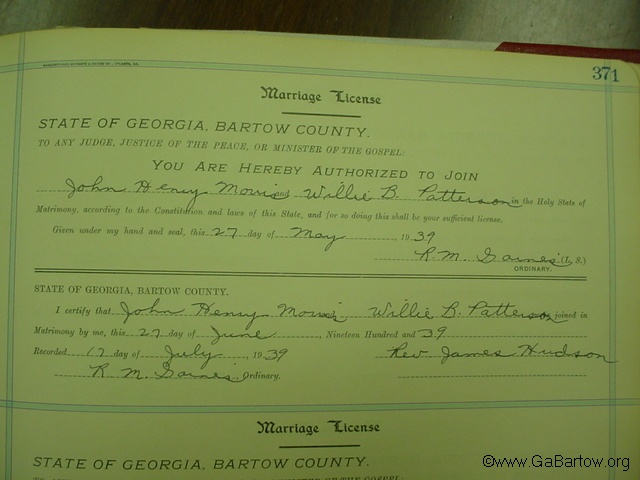 371
Marriage License
STATE OF GEORGIA, BARTOW COUNTY.
TO ANY JUDGE, JUSTICE OF THE PEACE, OR MINISTER OF THE GOSPEL:
YOU ARE HEREBY AUTHORIZED TO JOIN
John Henry Morris and Willie B. Patterson in the Holy State of
Matrimony, according to the Constitution and laws of this State, and for so doing this shall be your sufficient license.
Given under my hand and seal, this 27 day of May, 1939
R. M. Gaines (L. S.)
ORDINARY.
STATE OF GEORGIA, BARTOW COUNTY.
I certify that John Henry Morris and Willie B. Patterson joined in
Matrimony by me, this 27 day of June, Nineteen Hundred and 39
Recorded 17 day of July, 1939 Rev. James Hudson
R. M. Gaines Ordinary.
Marriage License
STATE OF GEORGIA, BARTOW COUNTY.
©www.GaBartow.org